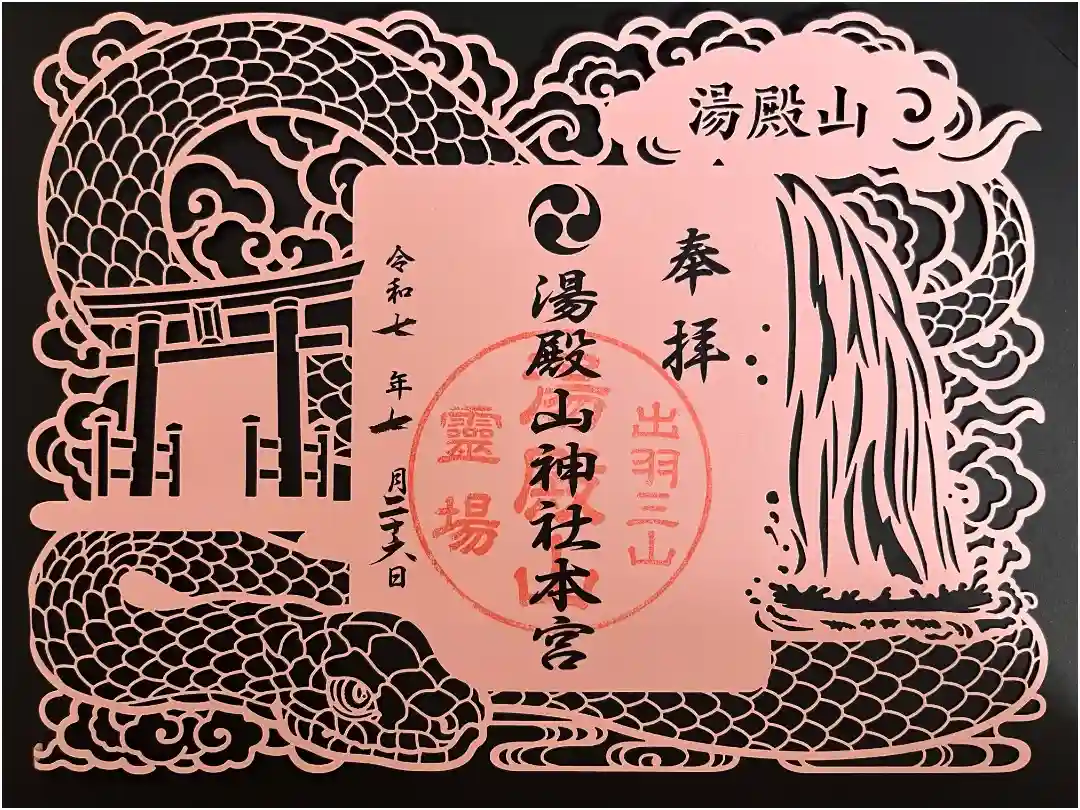 湯殿山
奉拝
湯殿山神社本宮
出羽三山
湯殿山
靈場
令和七年七月二十六日